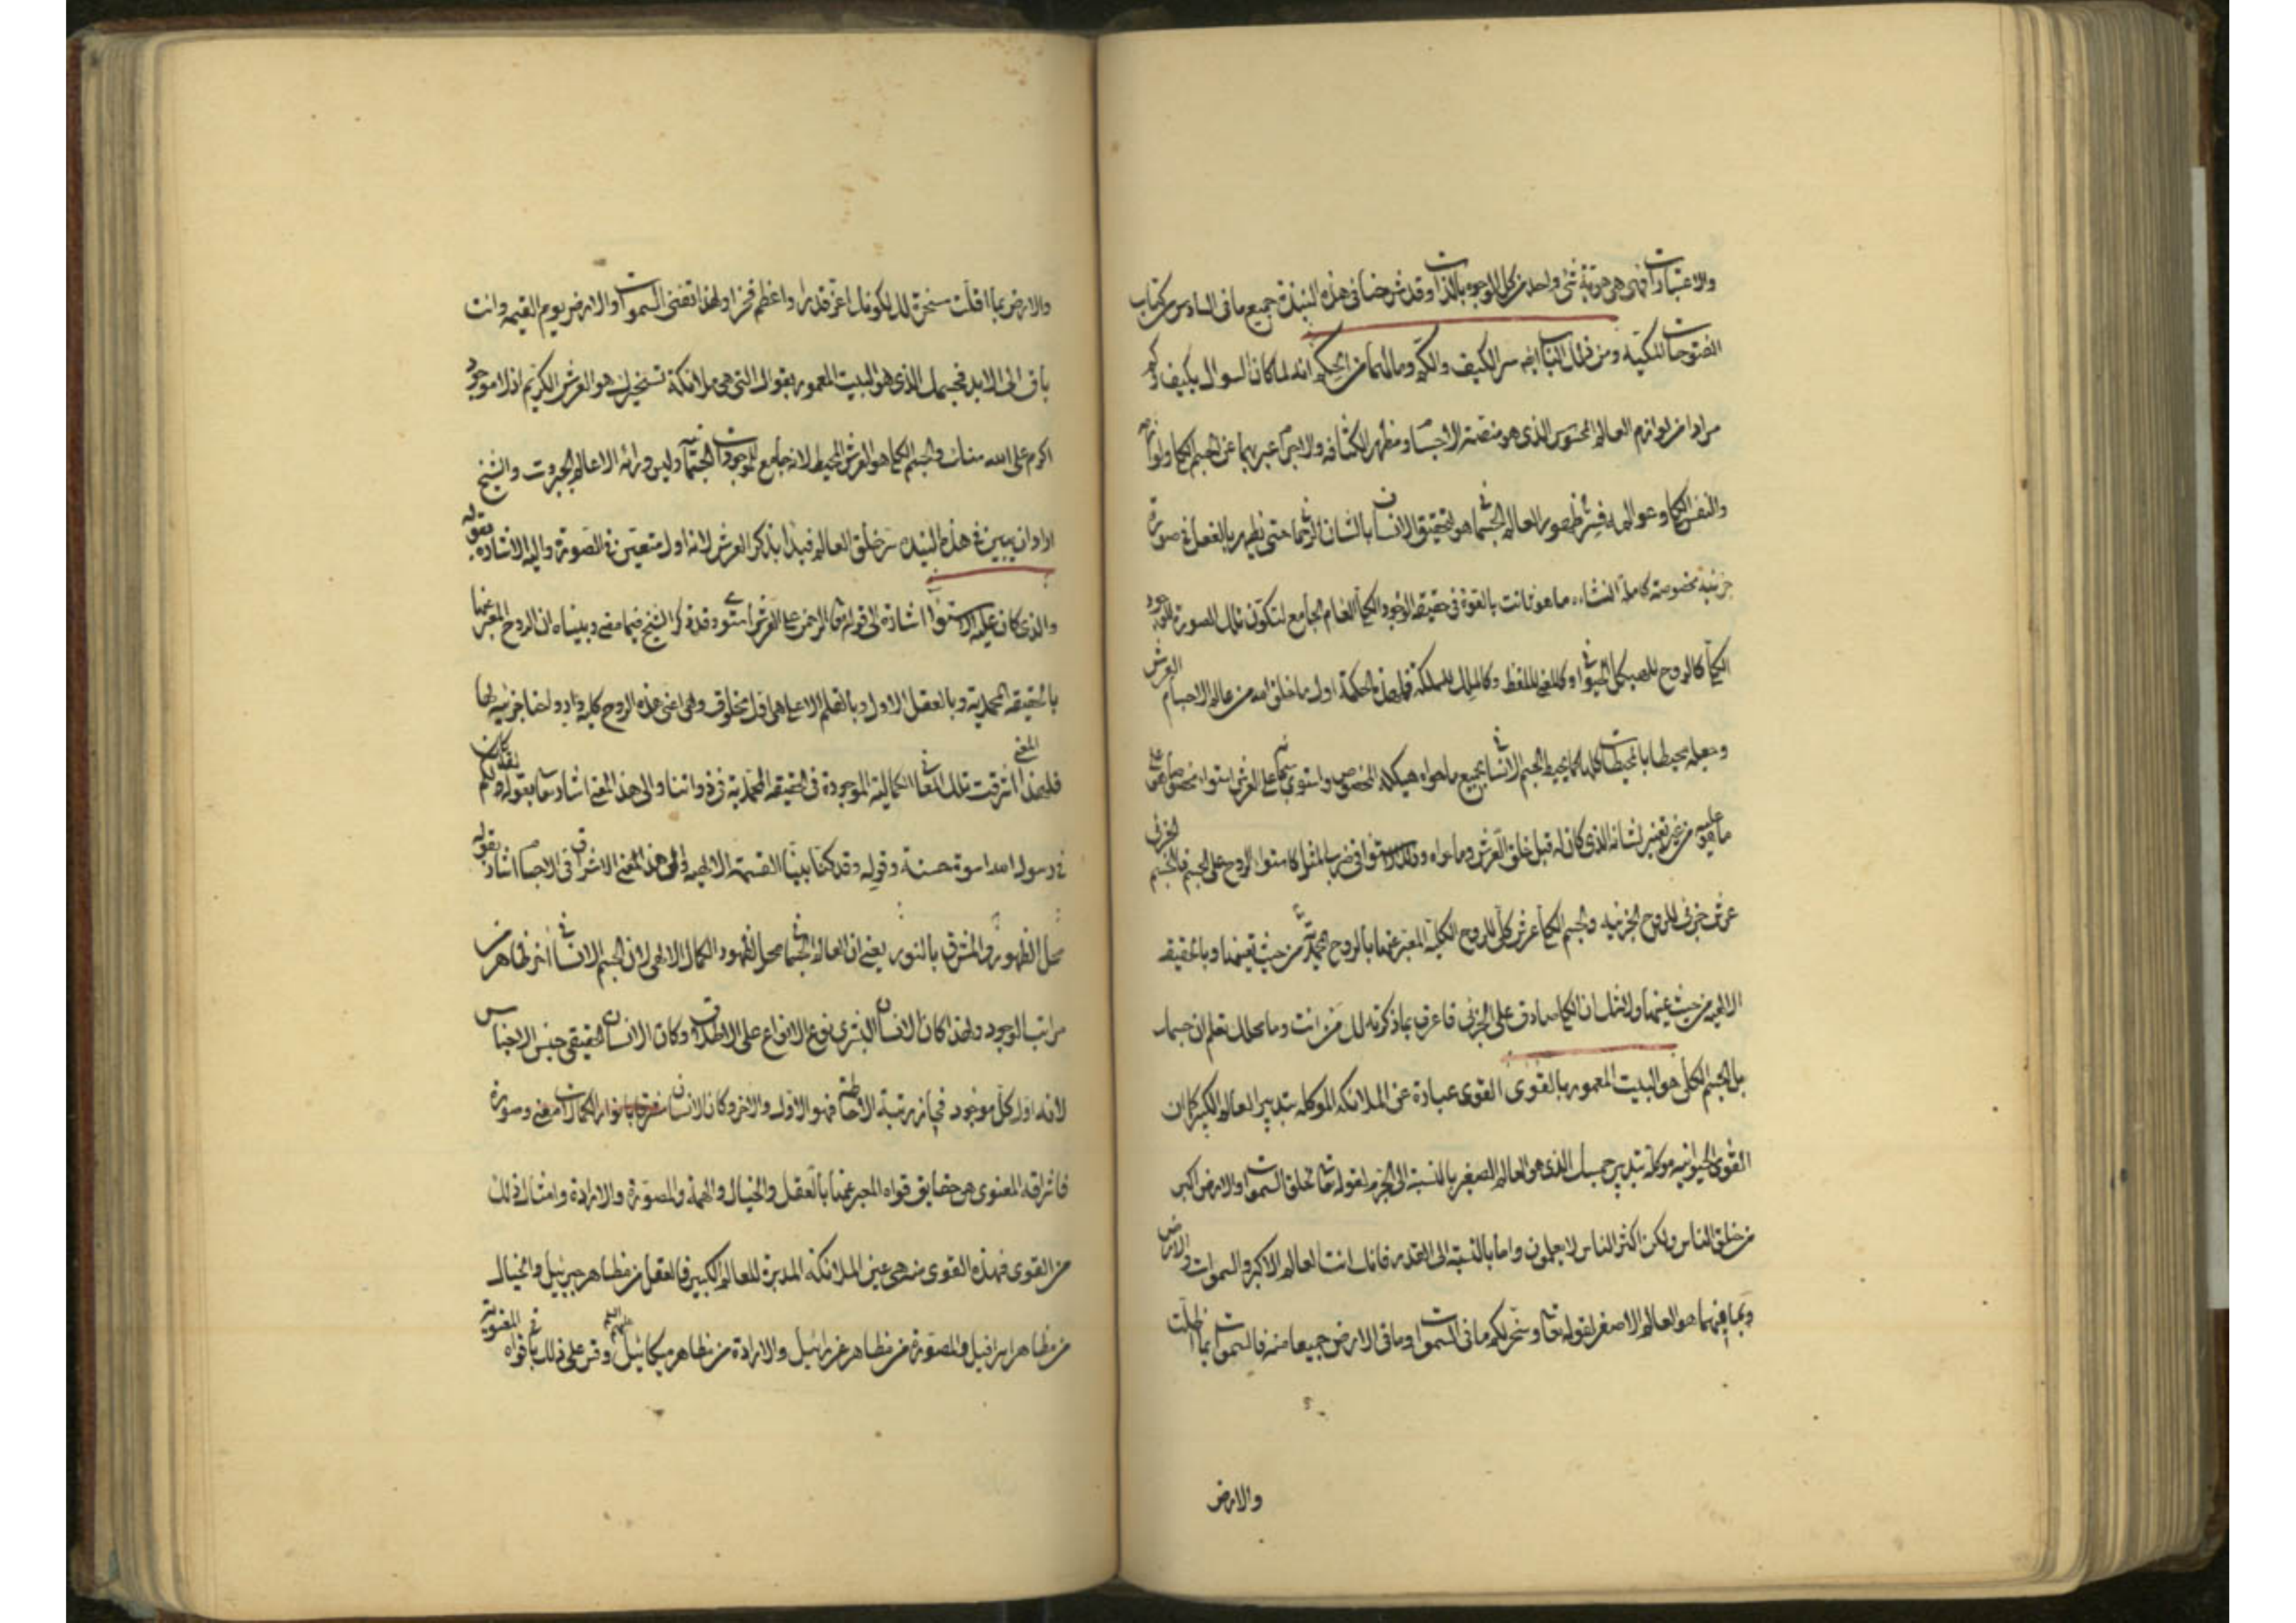 والاعتبارات فهي هوية شئ واحد من كل الوجوه بالذات وقد شرحنا في هذه النبذة جميع ما في السادس من كتاب
الفتوحات المكية ومن ذلك الباب ايضه سر الكيف والكم وما لهما من الحكم انه لما كان السوال بكيف وكم
مرادا من لوازم العالم المحسوس الذي هو منصة الاجسام ومظهر الكثافه والاين عبر بهما عن الجسم الكلي ولوازمه
والنفس الكلي وعوالمه فسر ظهور العالم الجسماني هو لتحقيق الانسان بالشان الرحماني حتى يظهر بالفعل في صورة
جزئية مخصوصة كاملة النشاء ما هو ثابت بالقوة في حقيقة الوجود الكلي العام الجامع لتكون تلك الصورة للوجود
الكلي كالروح للهيكل الحيواني او كالمعنى للفظ وكالملك للمملكة فلهذه الحكمة اول ما خلق الله من عالم الاجسام العرش
وجعله محيطا بالمحيطات كلها كما يحيط الجسم الانساني بجميع ما حواه هيكله المخصوص واستوى سبحانه على العرش استواء مخصوصا هو على
ما هو عليه من غير تغيير لشانه الذي كان له قبل خلق العرش وما حواه وذلك الاستواء في ضرب المثل كاستواء الروح على الجسم فالجسم الجزئي
عرش جزئي للروح الجزئية والجسم الكلي عرش كلي للروح الكلية المعبر عنها بالروح المحمدية من حيث تعينها وبالحقيقة
الالهية من حيث عينها ولا شك ان الكلي صادق على الجزئي فاعرف بما ذكرته لك من انت وما محلك تعلم ان جسمك
بل الجسم الكلي هو البيت المعمور بالقوى القوى عبارة عن الملائكه الموكله بتدبير العالم الكبير كما ان
القوى الحيوانية موكلة بتدبير جسمك الذي هو العالم الصغير بالنسبة الى الجرم لقوله تعالى لخلق السموات والارض اكبر
من خلق الناس ولكن اكثر الناس لا يعلمون واما بالنسبة الى القدر فانك انت العالم الاكبر والسموات والارض
وبما فيهما هو العالم الاصغر لقوله تعالى وسخر لكم ما في السموات وما في الارض جميعا منه فالسموات بما اظلت
والارض
والارض بما اقلت سخرة لك لكونك اعز قدرا واعظم فخرا ولهذا تفنى السموات والارض يوم القيمه وانت
باق الى الابد فجسمك الذي هو البيت المعمور بقواك التي هي ملائكة تسخيرك هو العرش الكريم اذ لا موجود
اكرم على الله منك والجسم الكلي هو العرش المحيط لانه جامع للموجودات الجسمانية وليس ورائه الا عالم الجبروت والشيخ
اراد ان يبين في هذه النبذه سر خلق العالم فبدا بذكر العرش لانه اول متعين في الصورة واليه الاشاره بقوله
والذي كان عليه الاستواء اشارة الى قوله تعالى الرحمن على العرش استوى وقد ذكر الشيخ فيما مضى وبيناه ان الروح المعبر عنها
بالحقيقة المحمدية وبالعقل الاول وبالقلم الاعلى هي اول مخلوق وهي اعني هذه الروح كلية وارواحنا جزئية لها
فلهذا المعنى اشرقت تلك المعاني الكمالية الموجودة في الحقيقة المحمدية في ذواتنا والى هذا المعنى اشار تعالى بقوله لقد كان لكم
في رسول الله اسوة حسنة وقوله وقد كنا بينا القسمة الالهية والى هذا المعنى الاشراقي في الاجسام اشار بقوله
محل الظهور والمشرق بالنور يعني ان العالم الجسماني محل لظهور الكمال الالهي لان الجسم الانساني اخر ظاهر من
مراتب الوجود ولهذا كان الانسان البشري نوع الانواع على الاطلاق وكان الانسان الحقيقي جنس الاجناس
لانه اول كل موجود فحاز رتبة الاحاطة فهو الاول والاخر وكان الانسان مشرقا بانوار الكمالات معنى وصورة
فاشراقه المعنوي هو حقايق قواه المعبر عنها بالعقل والخيال والهمة والمصورة والارادة وامثال ذلك
من القوى فهذه القوى منه هي عين الملائكة المدبرة للعالم الكبير فالعقل من مظاهر جبرئيل والخيال
من مظاهر اسرافيل والمصورة من مظاهر عزرائيل والارادة من مظاهر ميكائيل عليهم السلام وقس على ذلك باقي قواه المعنوية